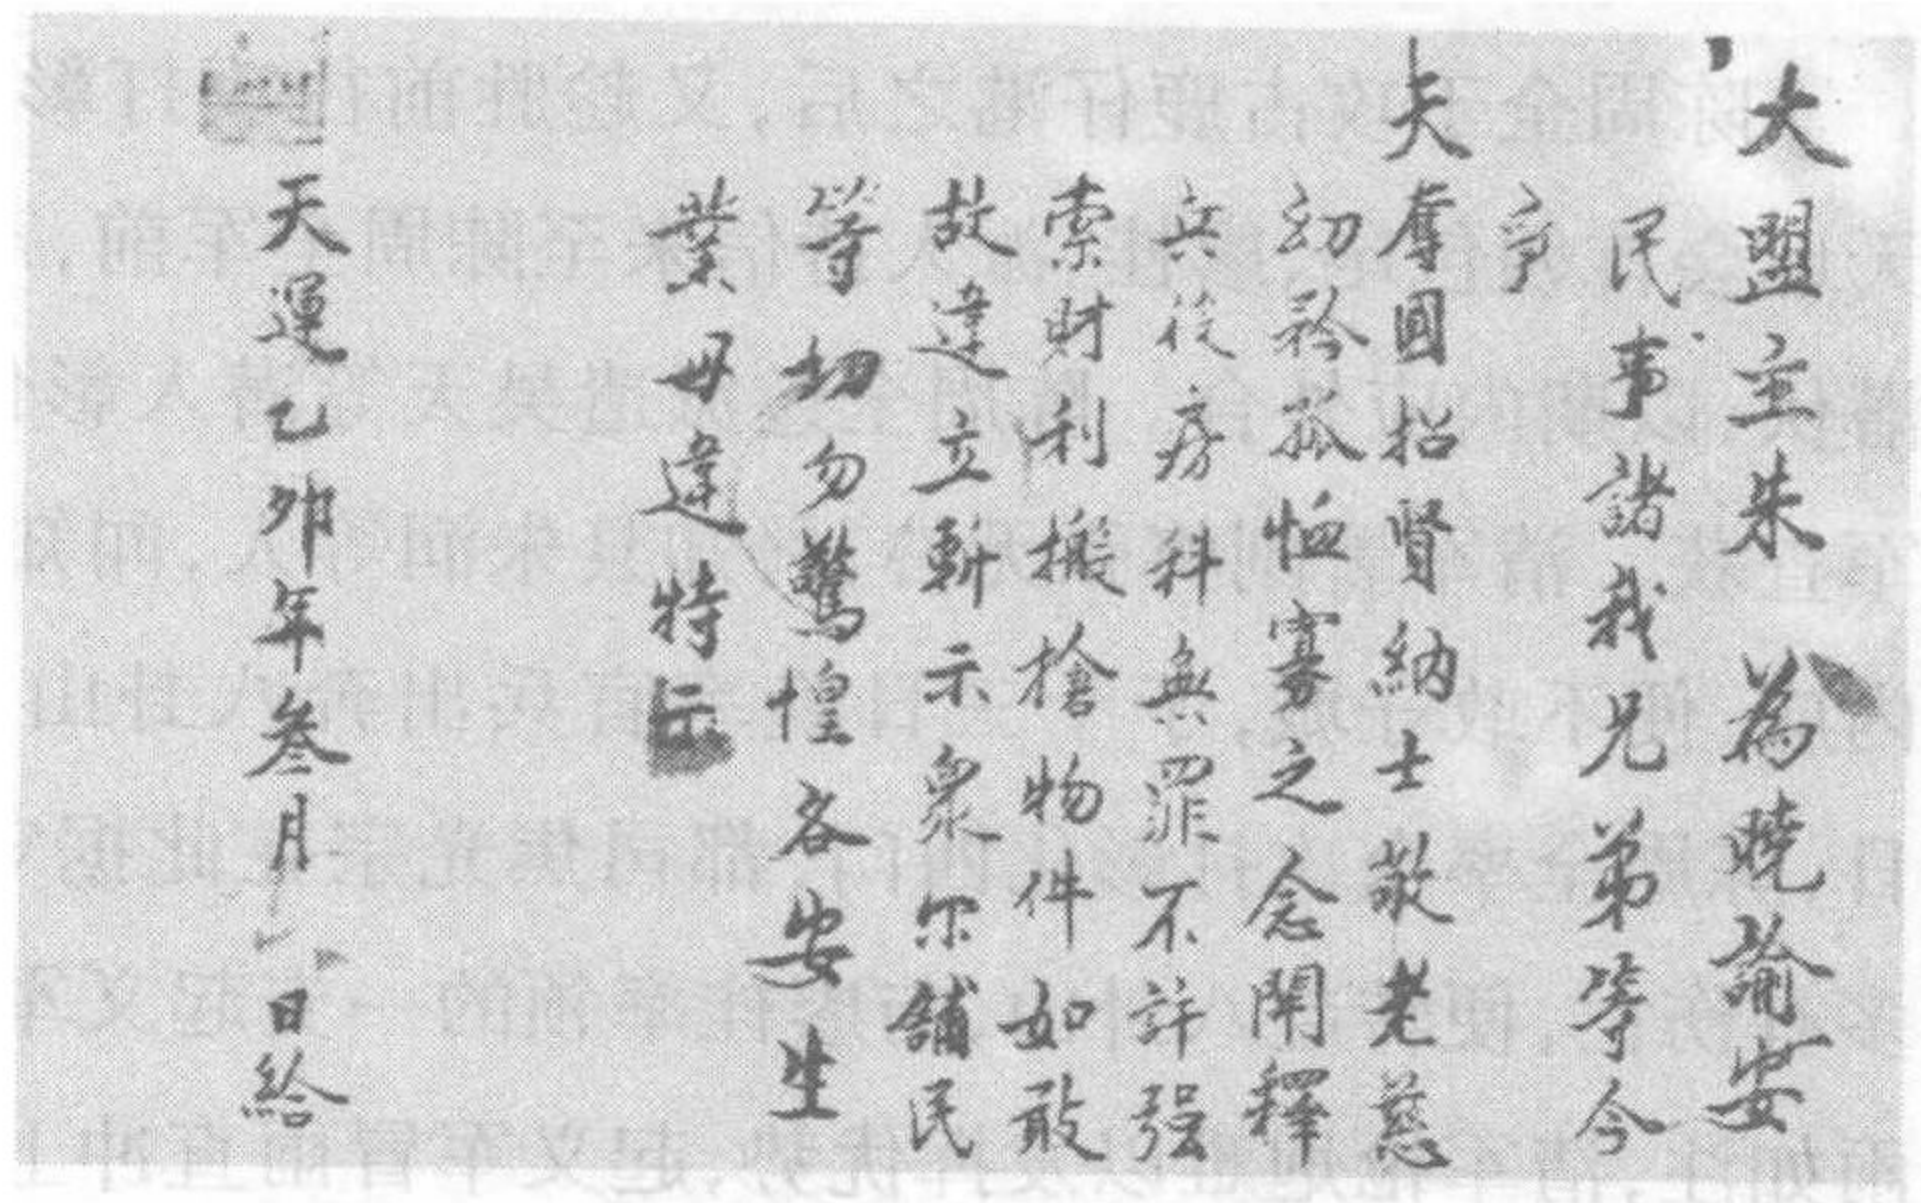 大盟主朱為曉諭安
民事諸我兄弟等今
爭
天奪國招賢納士敬老慈
幼矜孤恤寡之念開釋
兵役房科無罪不許强
索財利搬搶物件如敢
故違立斬示眾尔舖民
等切勿驚惶各安生
業毋違特示
天運乙卯年叁月日給